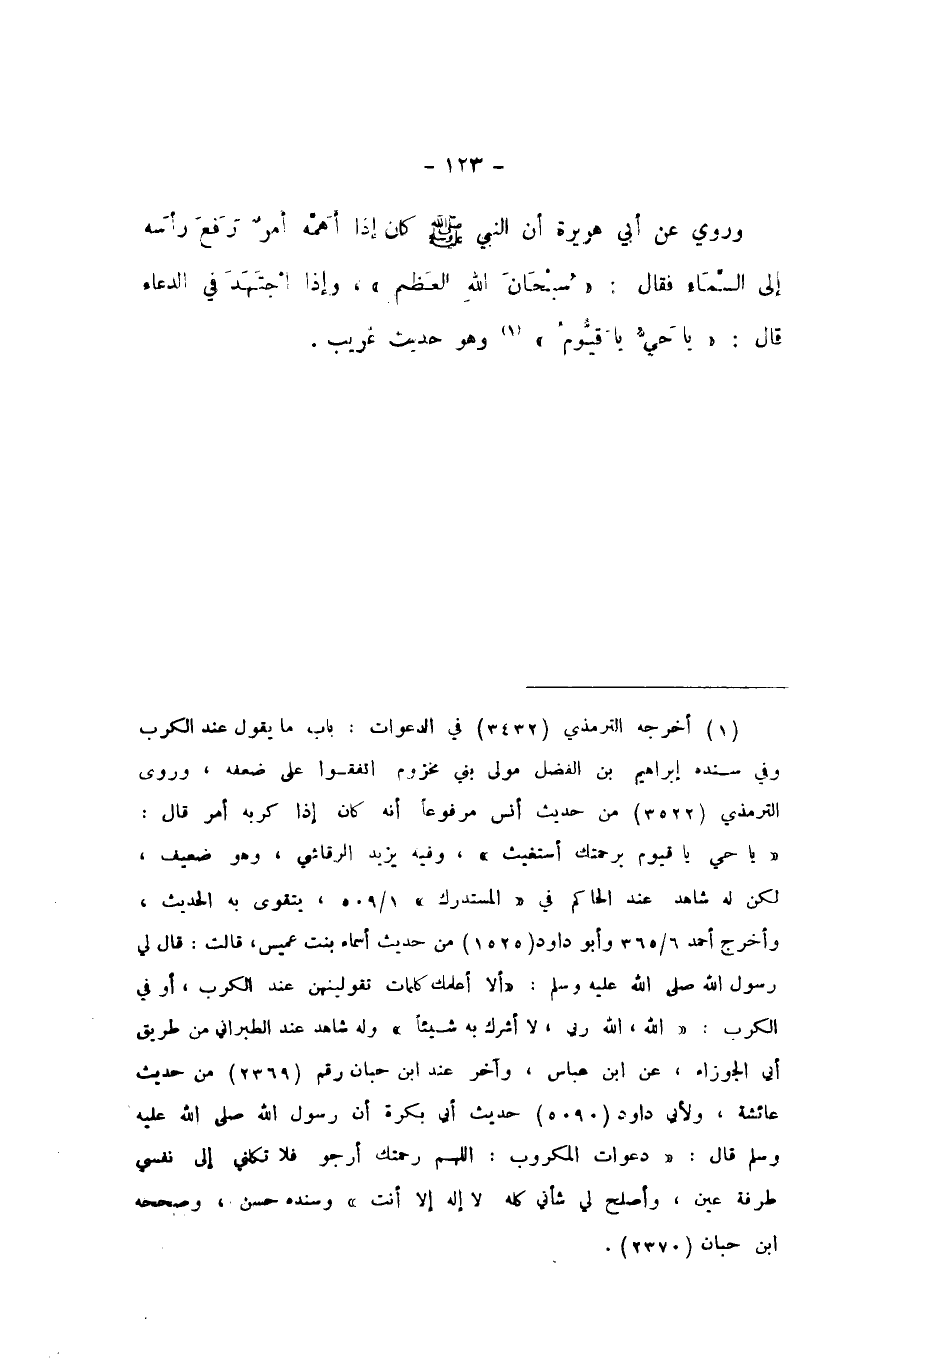 - ١٢٣ -
وروي عن أبي هريرة أن النبي ﷺ كان إذا أَهَمَّه أمرٌ رَفَعَ رأسَه
إلى السَّمَاء فقال : « سُبْحَانَ اللهِ العَظيم » ، وإذا اجْتَهَدَ في الدعاء
قال : « يا حَيُّ يا قَيُّومُ » (١) وهو حديث غريب .
(١) أخرجه الترمذي (٣٤٣٢) في الدعوات : باب ما يقول عند الكرب
وفي سنده إبراهيم بن الفضل مولى بني مخزوم اتفقوا على ضعفه ، وروى
الترمذي (٣٥٢٢) من حديث أنس مرفوعاً أنه كان إذا كربه أمر قال :
« يا حي يا قيوم برحمتك أستغيث » ، وفيه يزيد الرقاشي ، وهو ضعيف ،
لكن له شاهد عند الحاكم في « المستدرك » ٥٠٩/١ ، يتقوى به الحديث ،
وأخرج أحمد ٣٦٥/٦ وأبو داود(١٥٢٥) من حديث أسماء بنت عميس، قالت : قال لي
رسول الله صلى الله عليه وسلم : «ألا أعلمك كلمات تقولينهن عند الكرب ، أو في
الكرب : « الله ، الله ربي ، لا أشرك به شيئاً » وله شاهد عند الطبراني من طريق
أبي الجوزاء ، عن ابن عباس ، وآخر عند ابن حبان رقم (٢٣٦٩) من حديث
عائشة ، ولأبي داود (٥٠٩٠) حديث أبي بكرة أن رسول الله صلى الله عليه
وسلم قال : « دعوات المكروب : اللهم رحمتك أرجو فلا تكلني إلى نفسي
طرفة عين ، وأصلح لي شأني كله لا إله إلا أنت » وسنده حسن ، وصححه
ابن حبان (٢٣٧٠) .